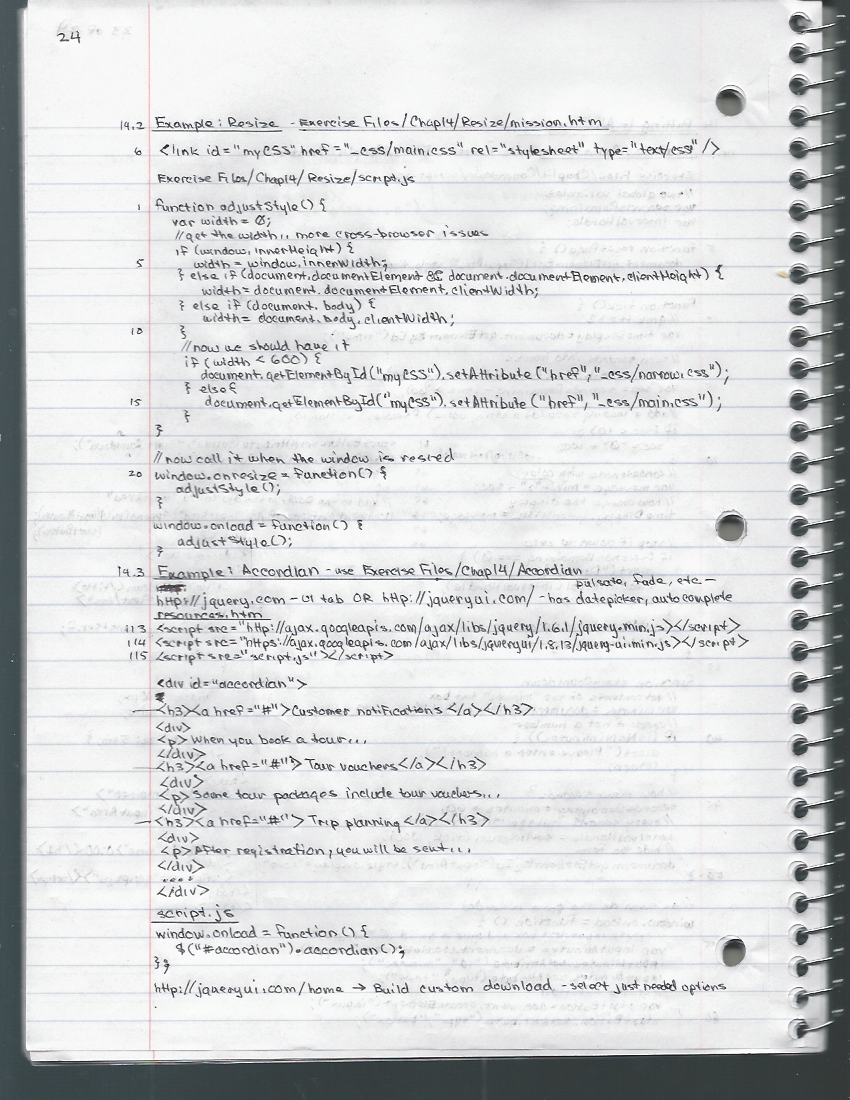 24
14.2 Example: Resize - Exercise Files/Chap14/Resize/mission.htm
6 <link id="myCSS" href="_css/main.css" rel="stylesheet" type="text/css" />
Exercise Files/Chap14/Resize/script.js
1 function adjustStyle() {
var width = 0;
//get the width.. more cross-browser issues
if (window.innerHeight) {
5 width = window.innerWidth;
} else if (document.documentElement && document.documentElement.clientHeight) {
width= document.documentElement.clientWidth;
} else if (document.body) {
width= document.body.clientWidth;
10 }
//now we should have it
if (width < 600) {
document.getElementById("myCSS").setAttribute("href","_css/narrow.css");
} else {
15 document.getElementById("myCSS").setAttribute("href","_css/main.css");
}
}
//now call it when the window is resized
20 window.onresize = function() {
adjustStyle();
}
window.onload = function() {
adjustStyle();
}
14.3 Example: Accordian - use Exercise Files/Chap14/Accordian
pulsate, fade, etc -
http://jquery.com - UI tab OR http://jqueryui.com/ - has datepicker, autocomplete
resources.htm
113 <script src="http://ajax.googleapis.com/ajax/libs/jquery/1.6.1/jquery.min.js></script>
114 <script src="https://ajax.googleapis.com/ajax/libs/jqueryui/1.8.13/jquery-ui.min.js></script>
115 <script src="script.js"></script>
<div id="accordian">
<h3><a href="#">Customer notifications </a></h3>
<div>
<p> When you book a tour...
</div>
<h3><a href="#"> Tour vouchers</a></h3>
<div>
<p> Some tour packages include tour vouchers...
</div>
<h3><a href="#"> Trip planning </a></h3>
<div>
<p> After registration, you will be sent...
</div>
....
</div>
script.js
window.onload = function () {
$("#accordian").accordian();
};
http://jqueryui.com/home → Build custom download - select just needed options